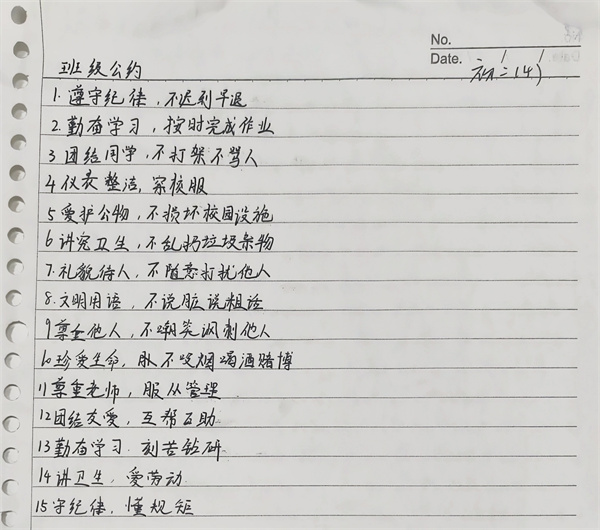 No.
Date.
初二(4)
班级公约
1.遵守纪律，不迟到早退
2.勤奋学习，按时完成作业
3团结同学，不打架不骂人
4仪表整洁，穿校服
5爱护公物，不损坏校园设施
6讲究卫生，不乱扔垃圾杂物
7.礼貌待人，不随意打扰他人
8.文明用语，不说脏说粗话
9尊重他人，不嘲笑讽刺他人
10珍爱生命，不吸烟喝酒赌博
11尊重老师，服从管理
12团结友爱，互帮互助
13勤奋学习.刻苦钻研
14讲卫生，爱劳动
15守纪律，懂规矩